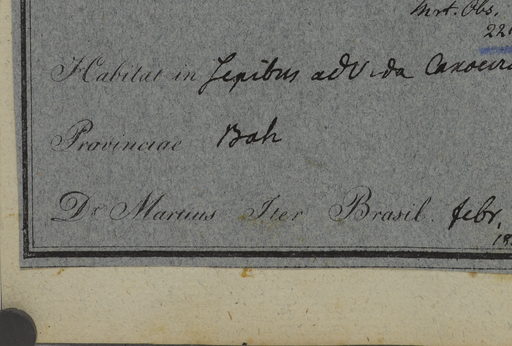 Mrt. Obs.
22
Habitat in Sepibus ad Vida Caxoeira
Provinciae Bah
Dr. Martius Iter Brasil. febr.
18